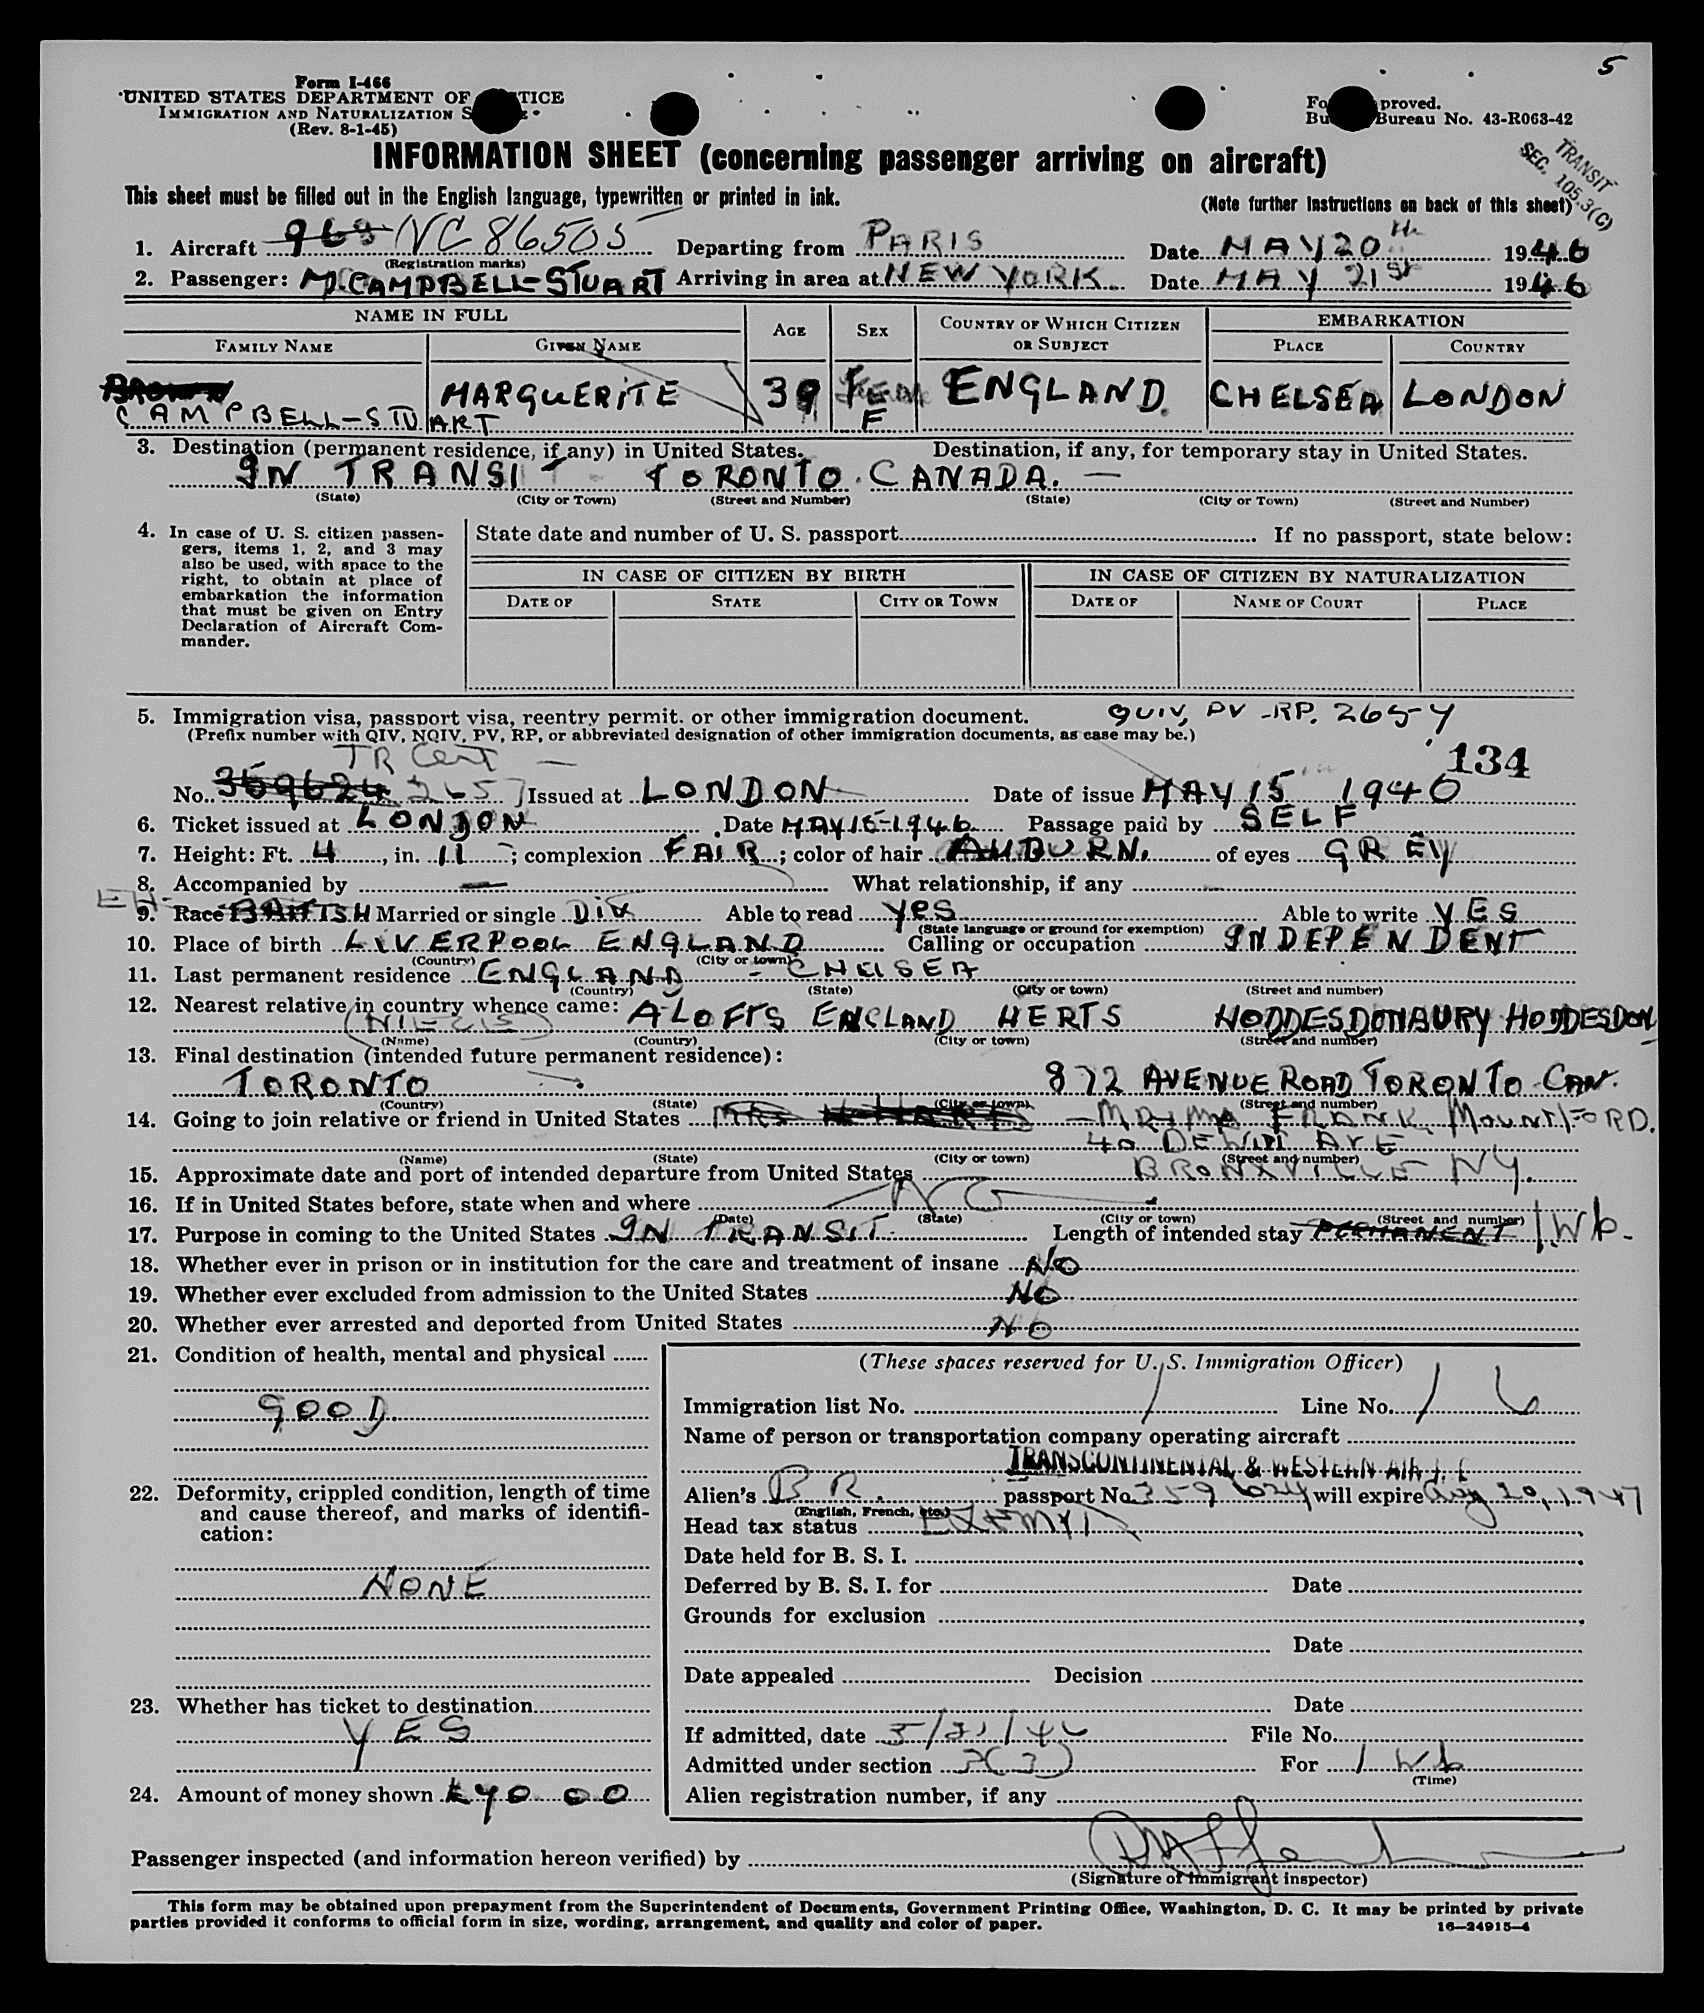 5
Form I-466
UNITED STATES DEPARTMENT OF TICE
IMMIGRATION AND NATURALIZATION S
(Rev. 8-1-45)
Fo proved.
Bu Bureau No. 43-R063-42
TRANSIT
SEC. 105.3(C)
INFORMATION SHEET (concerning passenger arriving on aircraft)
This sheet must be filled out in the English language, typewritten or printed in ink.
(Note further instructions on back of this sheet)
1. Aircraft 968 NC 86505 Departing from PARIS Date MAY 20th 1946
(Registration marks)
2. Passenger: M. CAMPBELL-STUART Arriving in area at NEW YORK Date MAY 21st 1946
NAME IN FULL AGE SEX COUNTRY OF WHICH CITIZEN OR SUBJECT EMBARKATION
FAMILY NAME GIVEN NAME PLACE COUNTRY
BROWN MARGUERITE 39 FEM ENGLAND CHELSEA LONDON
CAMPBELL-STUART F
3. Destination (permanent residence, if any) in United States. Destination, if any, for temporary stay in United States.
IN TRANSIT - TORONTO. CANADA. —
(State) (City or Town) (Street and Number) (State) (City or Town) (Street and Number)
4. In case of U. S. citizen passengers, items 1, 2, and 3 may also be used, with space to the right, to obtain at place of embarkation the information that must be given on Entry Declaration of Aircraft Commander.
State date and number of U. S. passport If no passport, state below:
IN CASE OF CITIZEN BY BIRTH IN CASE OF CITIZEN BY NATURALIZATION
DATE OF STATE CITY OR TOWN DATE OF NAME OF COURT PLACE
5. Immigration visa, passport visa, reentry permit, or other immigration document. QUIV, PV -RP. 265-Y
(Prefix number with QIV, NQIV, PV, RP, or abbreviated designation of other immigration documents, as case may be.)
TR Cert — 134
No. 359624 265 Issued at LONDON Date of issue MAY 15 1946
6. Ticket issued at LONDON Date MAY 15-1946 Passage paid by SELF
7. Height: Ft. 4, in. 11; complexion FAIR; color of hair AUBURN. of eyes GREY
8. Accompanied by — What relationship, if any
9. Race BRITISH Married or single DIV Able to read YES Able to write YES
(State language or ground for exemption)
10. Place of birth LIVERPOOL ENGLAND Calling or occupation INDEPENDENT
(Country) (City or town)
11. Last permanent residence ENGLAND - CHELSEA
(Country) (State) (City or town) (Street and number)
12. Nearest relative in country whence came: ALOFTS ENGLAND HERTS HODDESDONBURY HODDESDON
(Name) (Country) (City or town) (Street and number)
13. Final destination (intended future permanent residence):
TORONTO 872 AVENUE ROAD TORONTO CAN.
(Country) (State) (City or town) (Street and number)
14. Going to join relative or friend in United States MRS - MR & MRS FRANK MOUNTFORD.
40 DEWITT AVE
(Name) (State) (City or town) (Street and number)
15. Approximate date and port of intended departure from United States BRONXVILLE NY.
16. If in United States before, state when and where NO
(Date) (State) (City or town) (Street and number)
17. Purpose in coming to the United States IN TRANSIT. Length of intended stay PERMANENT 1 Wk.
18. Whether ever in prison or in institution for the care and treatment of insane NO
19. Whether ever excluded from admission to the United States NO
20. Whether ever arrested and deported from United States NO
21. Condition of health, mental and physical
GOOD
22. Deformity, crippled condition, length of time and cause thereof, and marks of identification:
NONE
23. Whether has ticket to destination
YES
24. Amount of money shown £40 00
(These spaces reserved for U. S. Immigration Officer)
Immigration list No. 1 Line No. 16
Name of person or transportation company operating aircraft
TRANSCONTINENTAL & WESTERN AIR
Alien's BR. passport No. 359624 will expire Aug 20, 1947
(English, French, etc.)
Head tax status EXEMPT
Date held for B. S. I.
Deferred by B. S. I. for Date
Grounds for exclusion
Date
Date appealed Decision
Date
If admitted, date 5/21/46 File No.
Admitted under section 3(3) For 1 Wk
(Time)
Alien registration number, if any
Passenger inspected (and information hereon verified) by
(Signature of immigrant inspector)
This form may be obtained upon prepayment from the Superintendent of Documents, Government Printing Office, Washington, D. C. It may be printed by private
parties provided it conforms to official form in size, wording, arrangement, and quality and color of paper. 16—24915-4